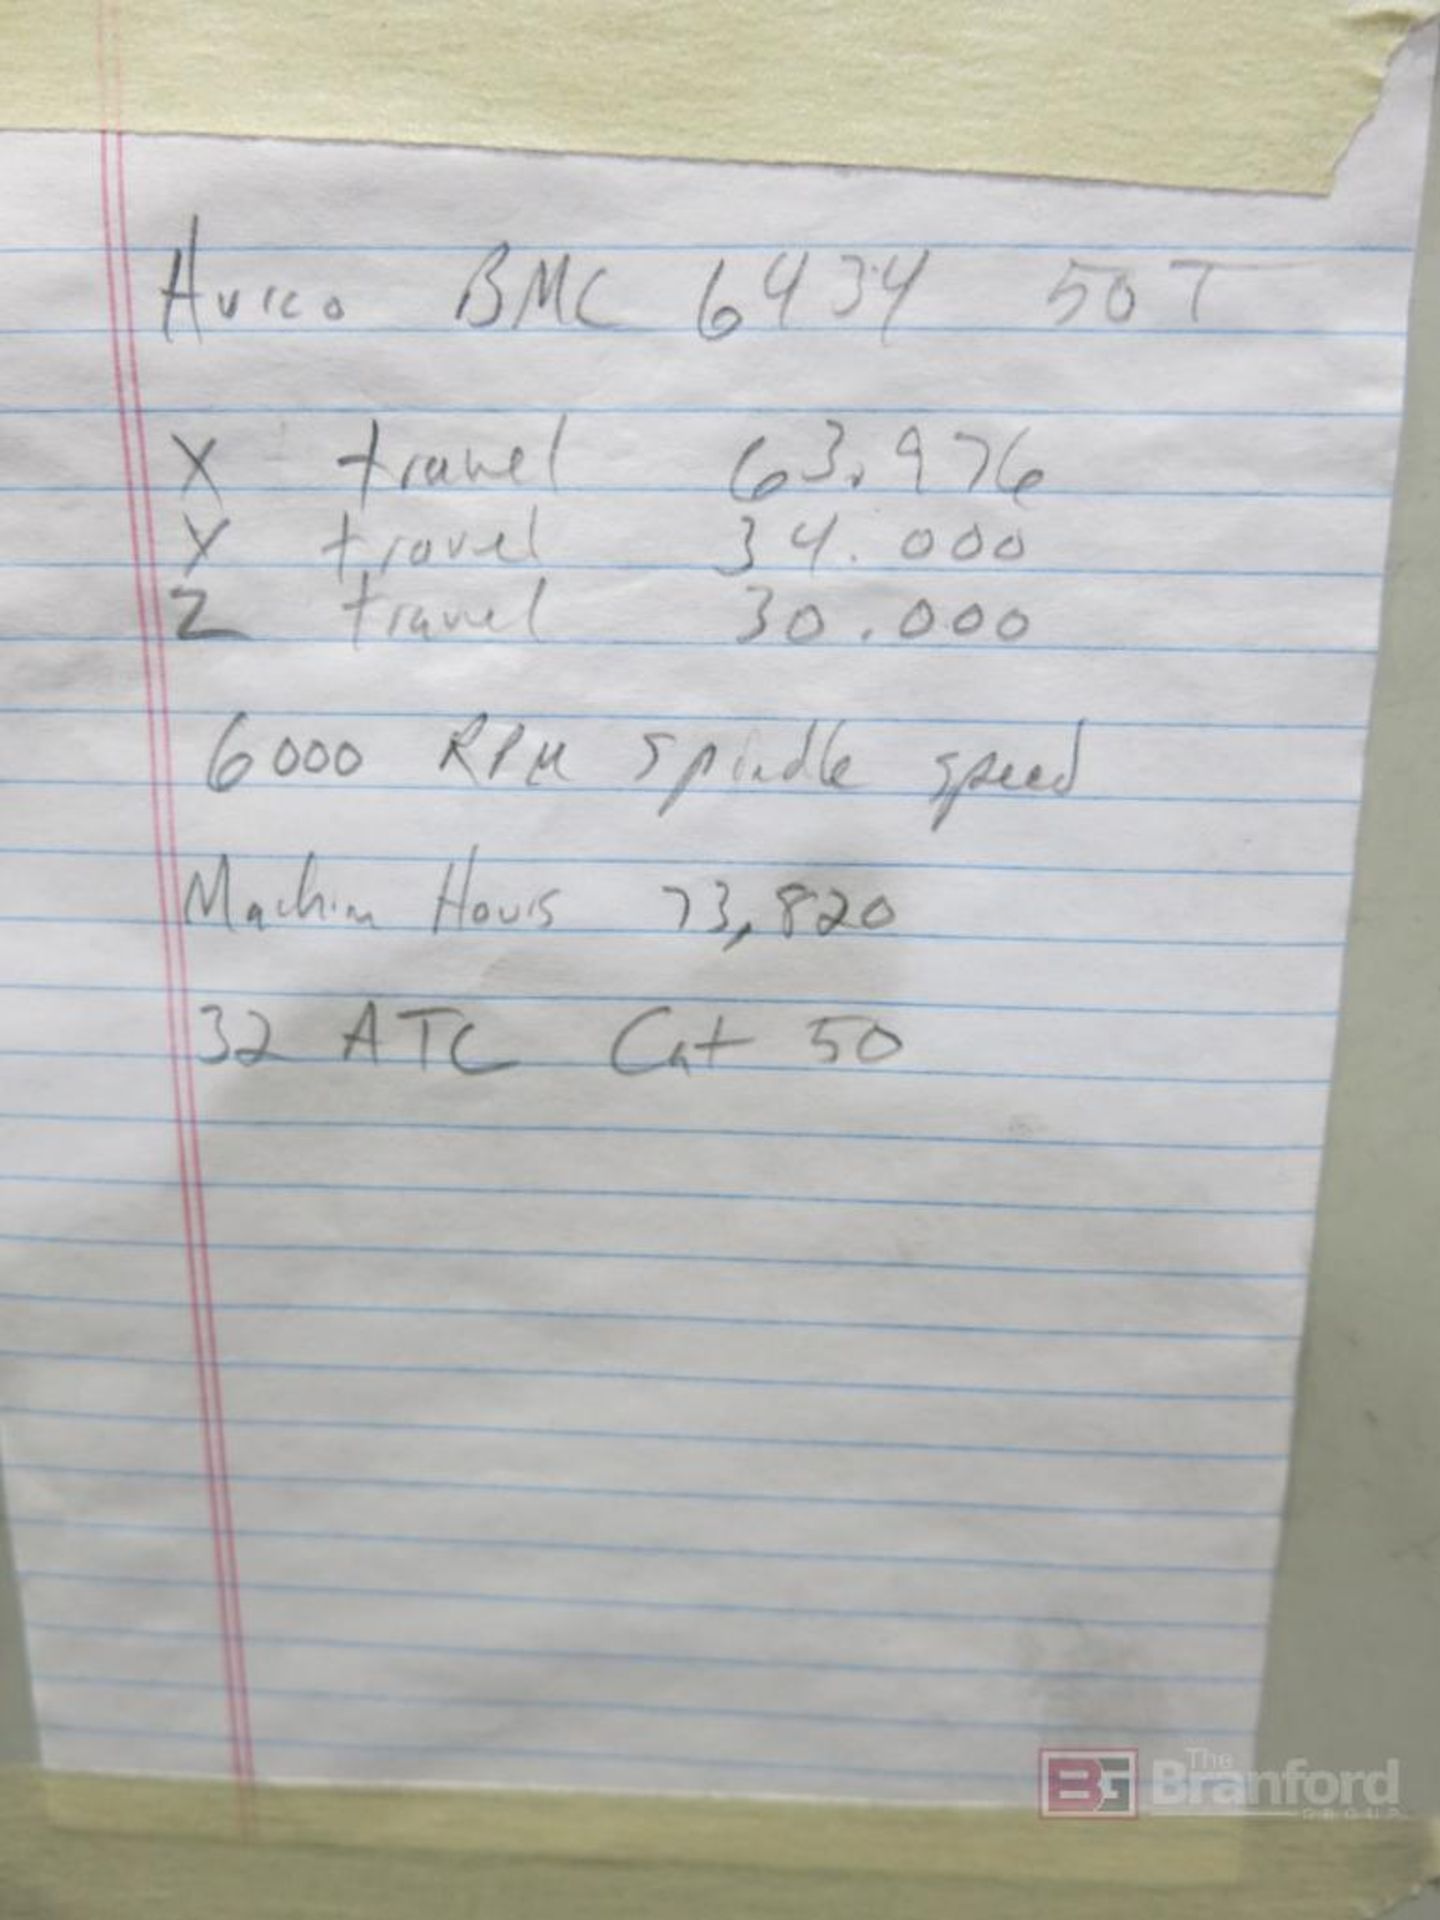 Hurco BMC 6434 50T
X travel 63.976
Y travel 34.000
Z travel 30.000
6000 RPM Spindle speed
Machine Hours 73,820
32 ATC Cat 50
BG The Branford GROUP